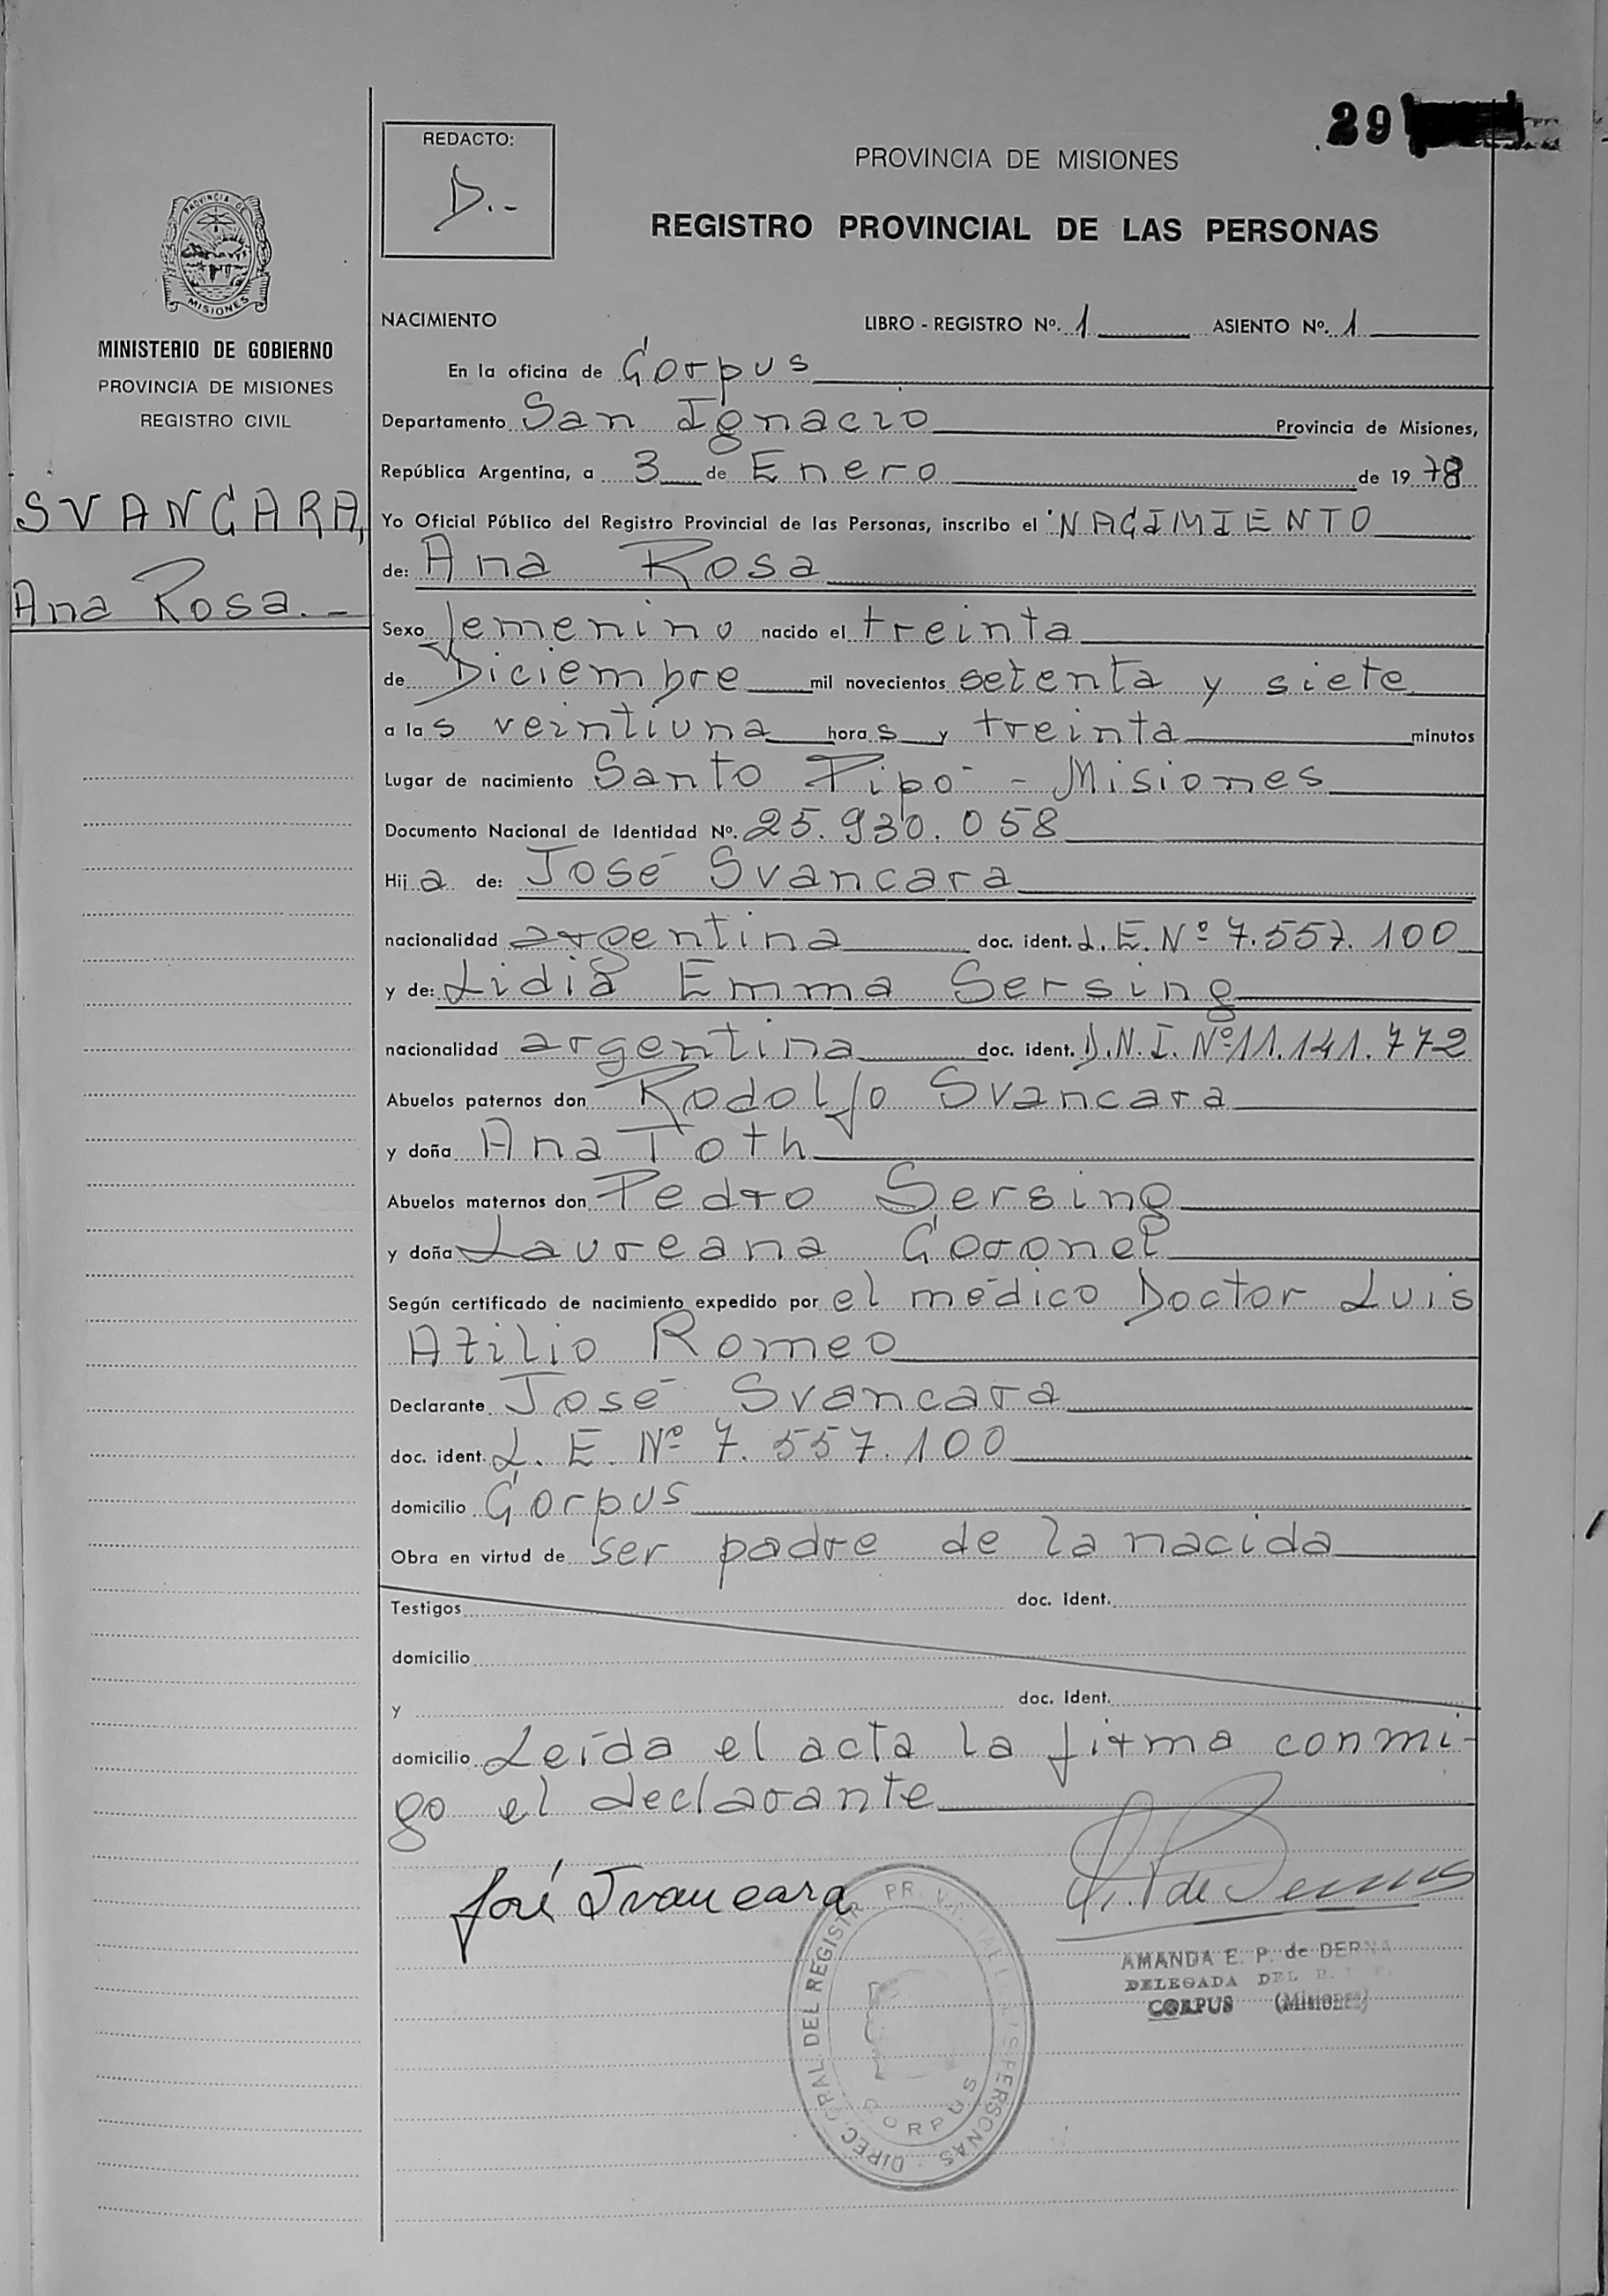 29
REDACTO:
D.-
PROVINCIA DE MISIONES
REGISTRO PROVINCIAL DE LAS PERSONAS
PROVINCIA DE
MISIONES
MINISTERIO DE GOBIERNO
PROVINCIA DE MISIONES
REGISTRO CIVIL
SVANCARA,
Ana Rosa.-
NACIMIENTO LIBRO - REGISTRO Nº. 1 ASIENTO Nº. 1
En la oficina de Corpus
Departamento San Ignacio Provincia de Misiones,
República Argentina, a 3 de Enero de 1978
Yo Oficial Público del Registro Provincial de las Personas, inscribo el NACIMIENTO
de: Ana Rosa
Sexo femenino nacido el treinta
de Diciembre mil novecientos setenta y siete
a las veintiuna horas y treinta minutos
Lugar de nacimiento Santo Pipó - Misiones
Documento Nacional de Identidad Nº. 25.930.058
Hija de: José Svancara
nacionalidad argentina doc. ident. L.E.Nº 7.557.100
y de: Lidia Emma Sersing
nacionalidad argentina doc. ident. D.N.I. Nº11.141.772
Abuelos paternos don Rodolfo Svancara
y doña Ana Toth
Abuelos maternos don Pedro Sersing
y doña Laureana Coronel
Según certificado de nacimiento expedido por el médico Doctor Luis
Atilio Romeo
Declarante José Svancara
doc. ident. L.E. Nº 7.557.100
domicilio Corpus
Obra en virtud de ser padre de la nacida
Testigos doc. ident.
domicilio
y doc. ident.
domicilio Leída el acta la firma conmi-
go el declarante
José Svancara
AMANDA E. P. de DERNA
DELEGADA DEL R.
CORPUS (Misiones)
DIREC. GRAL. DEL REGISTR. PERSONAS
CORPUS